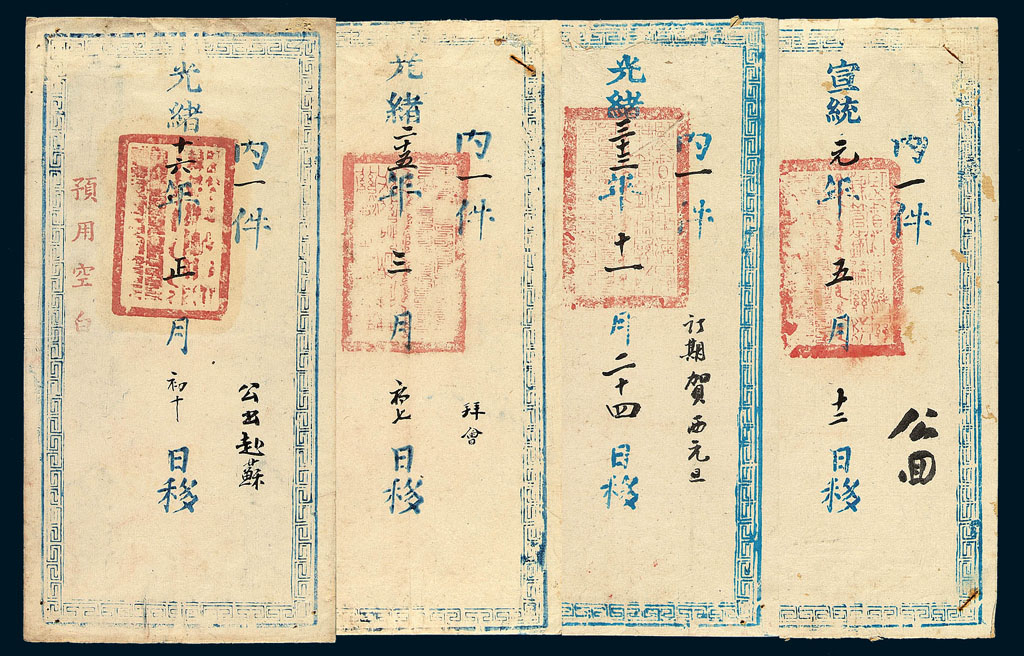 內一件
光緒十六年正月初十日移
公出赴蘇
預用空白
內一件
光緒二十五年三月初七日移
拜會
內一件
光緒三十三年十一月二十四日移
訂期賀西元旦
內一件
宣統元年五月十二日移
公回